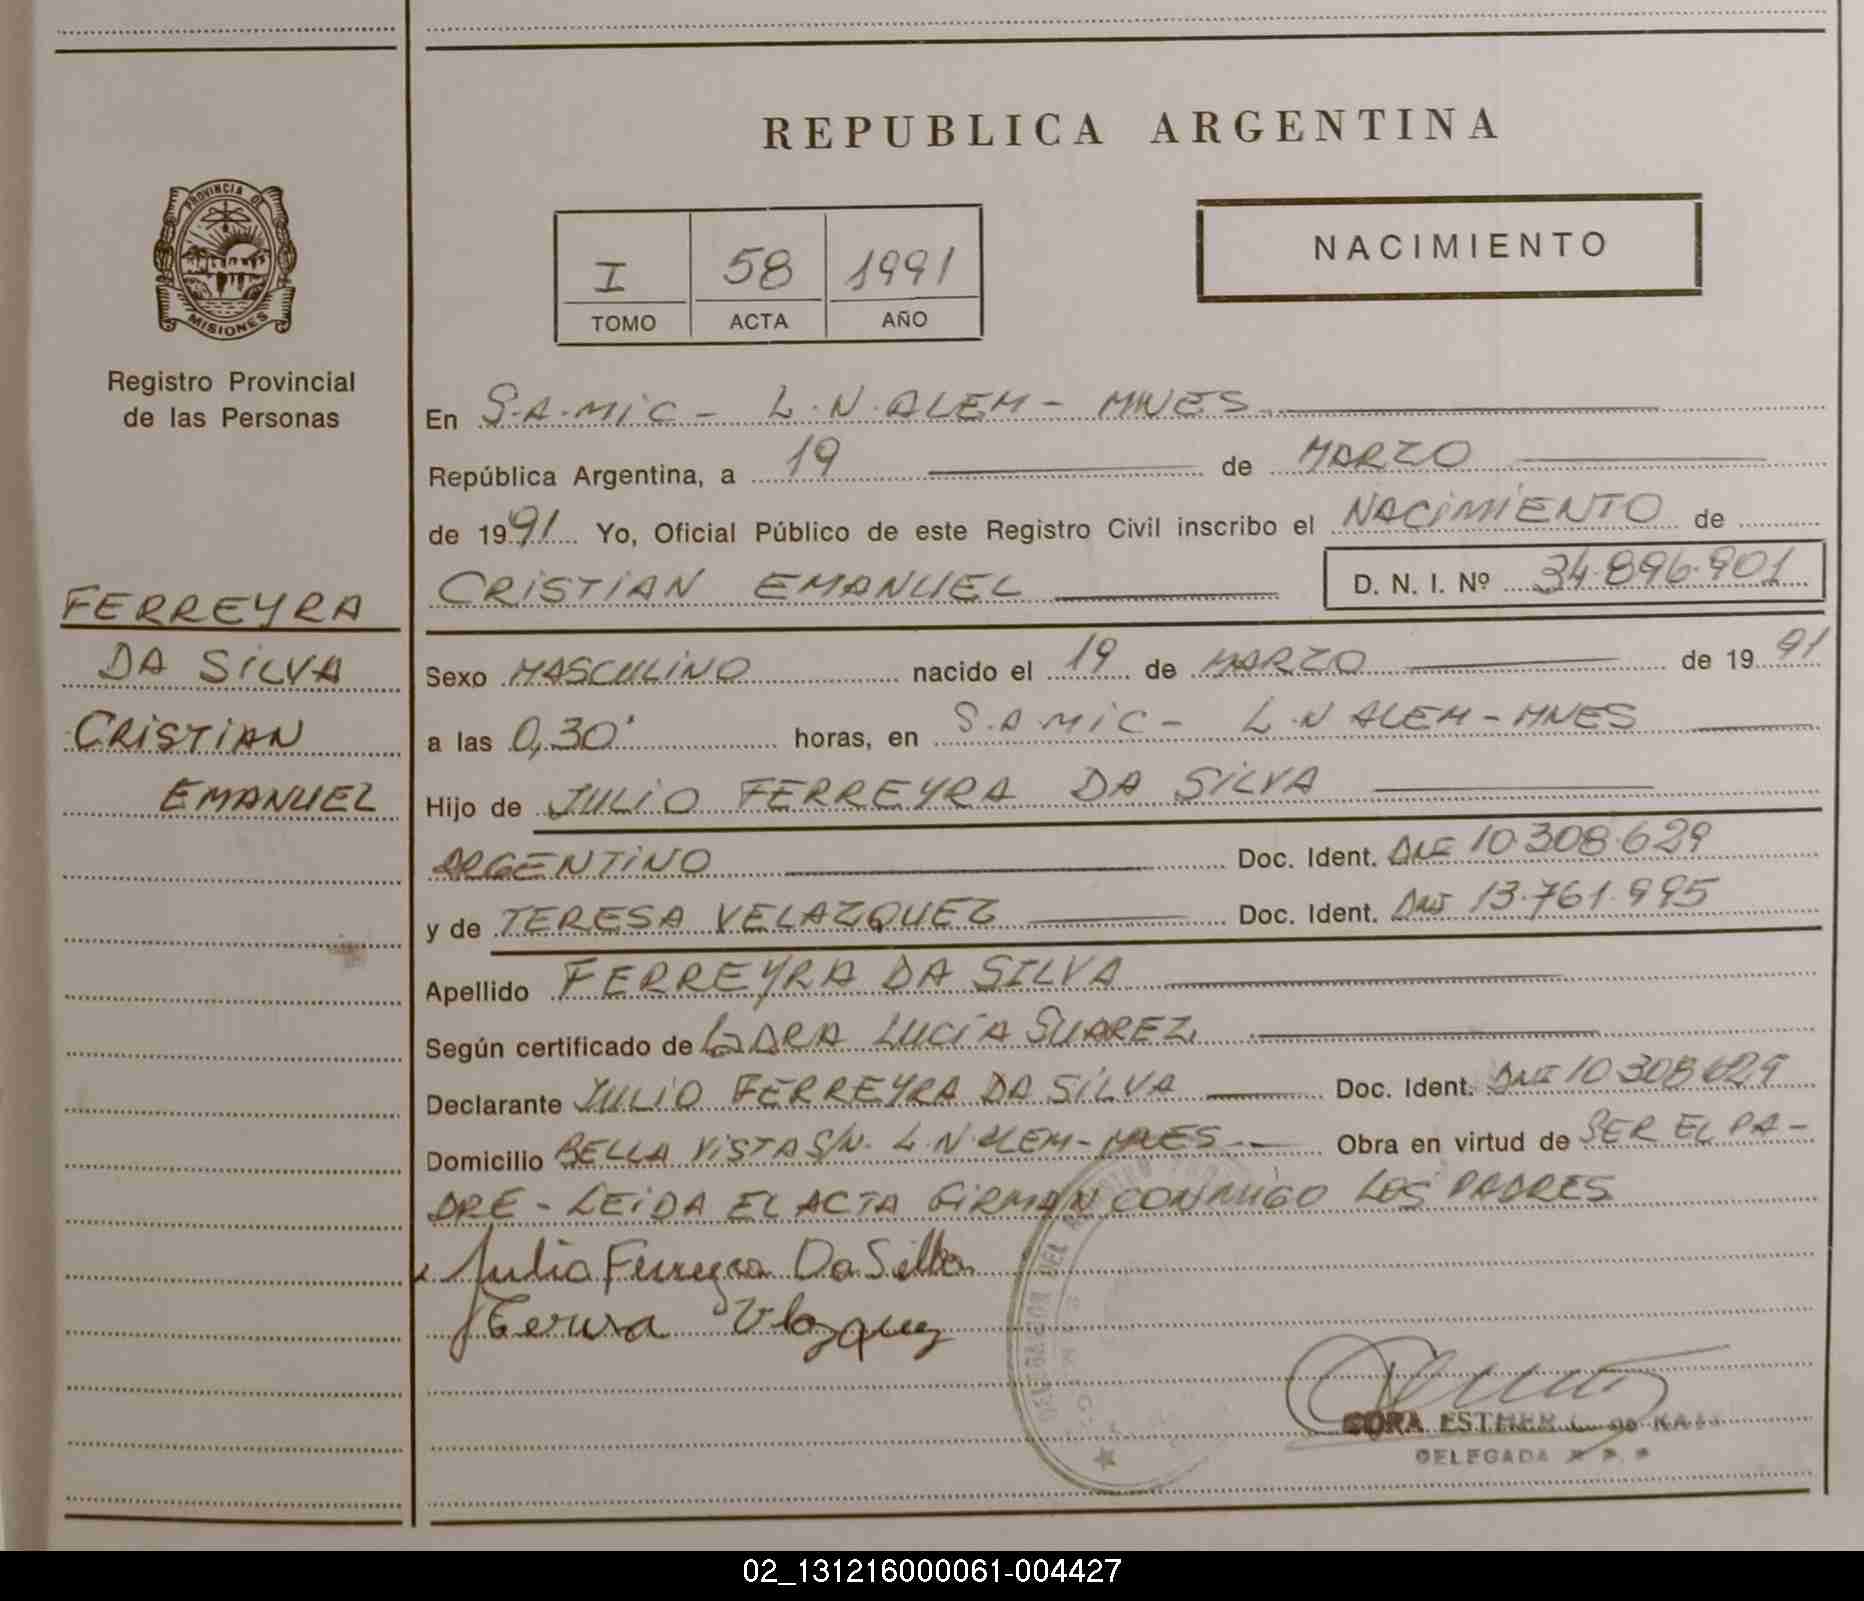 REPUBLICA ARGENTINA
PROVINCIA DE
MISIONES
Registro Provincial
de las Personas
I 58 1991
TOMO ACTA AÑO
NACIMIENTO
En S.A.MIC - L.N.ALEM - MNES
República Argentina, a 19 de MARZO
de 1991 Yo, Oficial Público de este Registro Civil inscribo el NACIMIENTO de
CRISTIAN EMANUEL D. N. I. Nº 34.896.901
FERREYRA
DA SILVA
CRISTIAN
EMANUEL
Sexo MASCULINO nacido el 19 de MARZO de 1991
a las 0,30' horas, en S.A.MIC - L.N ALEM - MNES
Hijo de JULIO FERREYRA DA SILVA
ARGENTINO Doc. Ident. DNI 10.308.629
y de TERESA VELAZQUEZ Doc. Ident. DNI 13.761.995
Apellido FERREYRA DA SILVA
Según certificado de LA DRA LUCIA SUAREZ
Declarante JULIO FERREYRA DA SILVA Doc. Ident. DNI 10 308 629
Domicilio BELLA VISTA S/N. L.N.ALEM - MNES - Obra en virtud de SER EL PA-
DRE - LEIDA EL ACTA FIRMAN CONMIGO LOS PADRES
Julio Ferreyra Da Silva
Teresa Velazquez
DELEGACION DEL
CORA ESTHER
DELEGADA
02_131216000061-004427